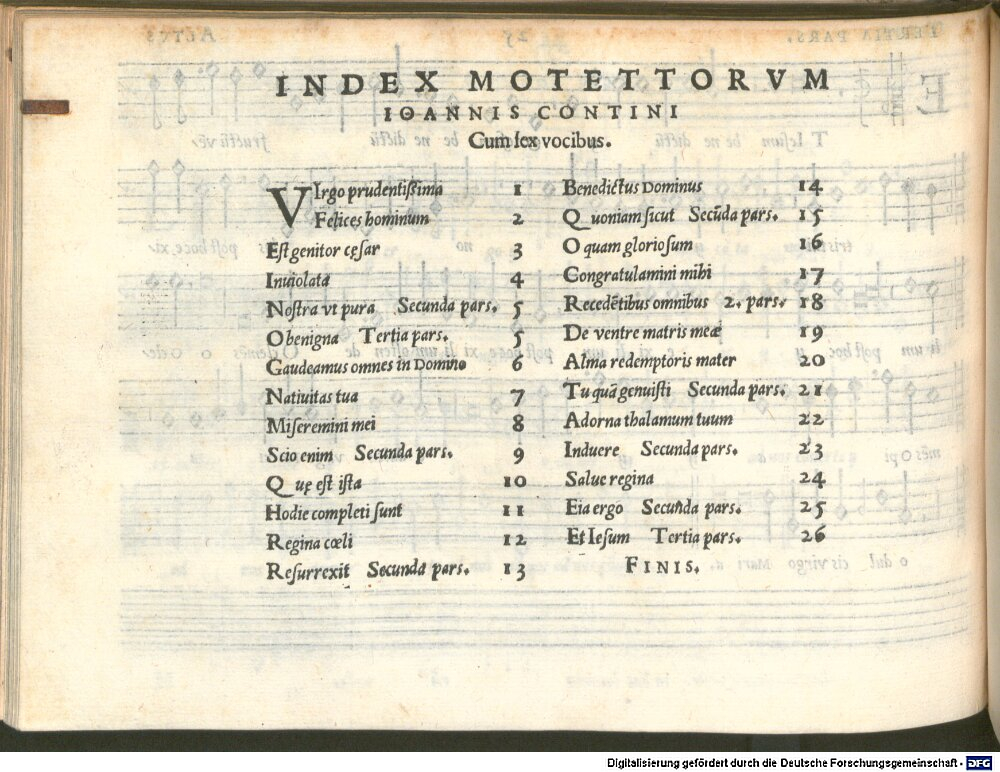 INDEX MOTETTORVM
IOANNIS CONTINI
Cum ſex vocibus.
VIrgo prudentiſſima 1
Felices hominum 2
Eſt genitor cęſar 3
Inuiolata 4
Noſtra vt pura Secunda pars. 5
O benigna Tertia pars. 5
Gaudeamus omnes in Domino 6
Natiuitas tua 7
Miſeremini mei 8
Scio enim Secunda pars. 9
Quę eſt iſta 10
Hodie completi ſunt 11
Regina cœli 12
Reſurrexit Secunda pars. 13
Benedictus Dominus 14
Quoniam ſicut Secūda pars. 15
O quam glorioſum 16
Congratulamini mihi 17
Recedētibus omnibus 2. pars. 18
De ventre matris meæ 19
Alma redemptoris mater 20
Tu quā genuiſti Secunda pars. 21
Adorna thalamum tuum 22
Induere Secunda pars. 23
Salue regina 24
Eia ergo Secunda pars. 25
Et Ieſum Tertia pars. 26
FINIS.
Digitalisierung gefördert durch die Deutsche Forschungsgemeinschaft - DFG